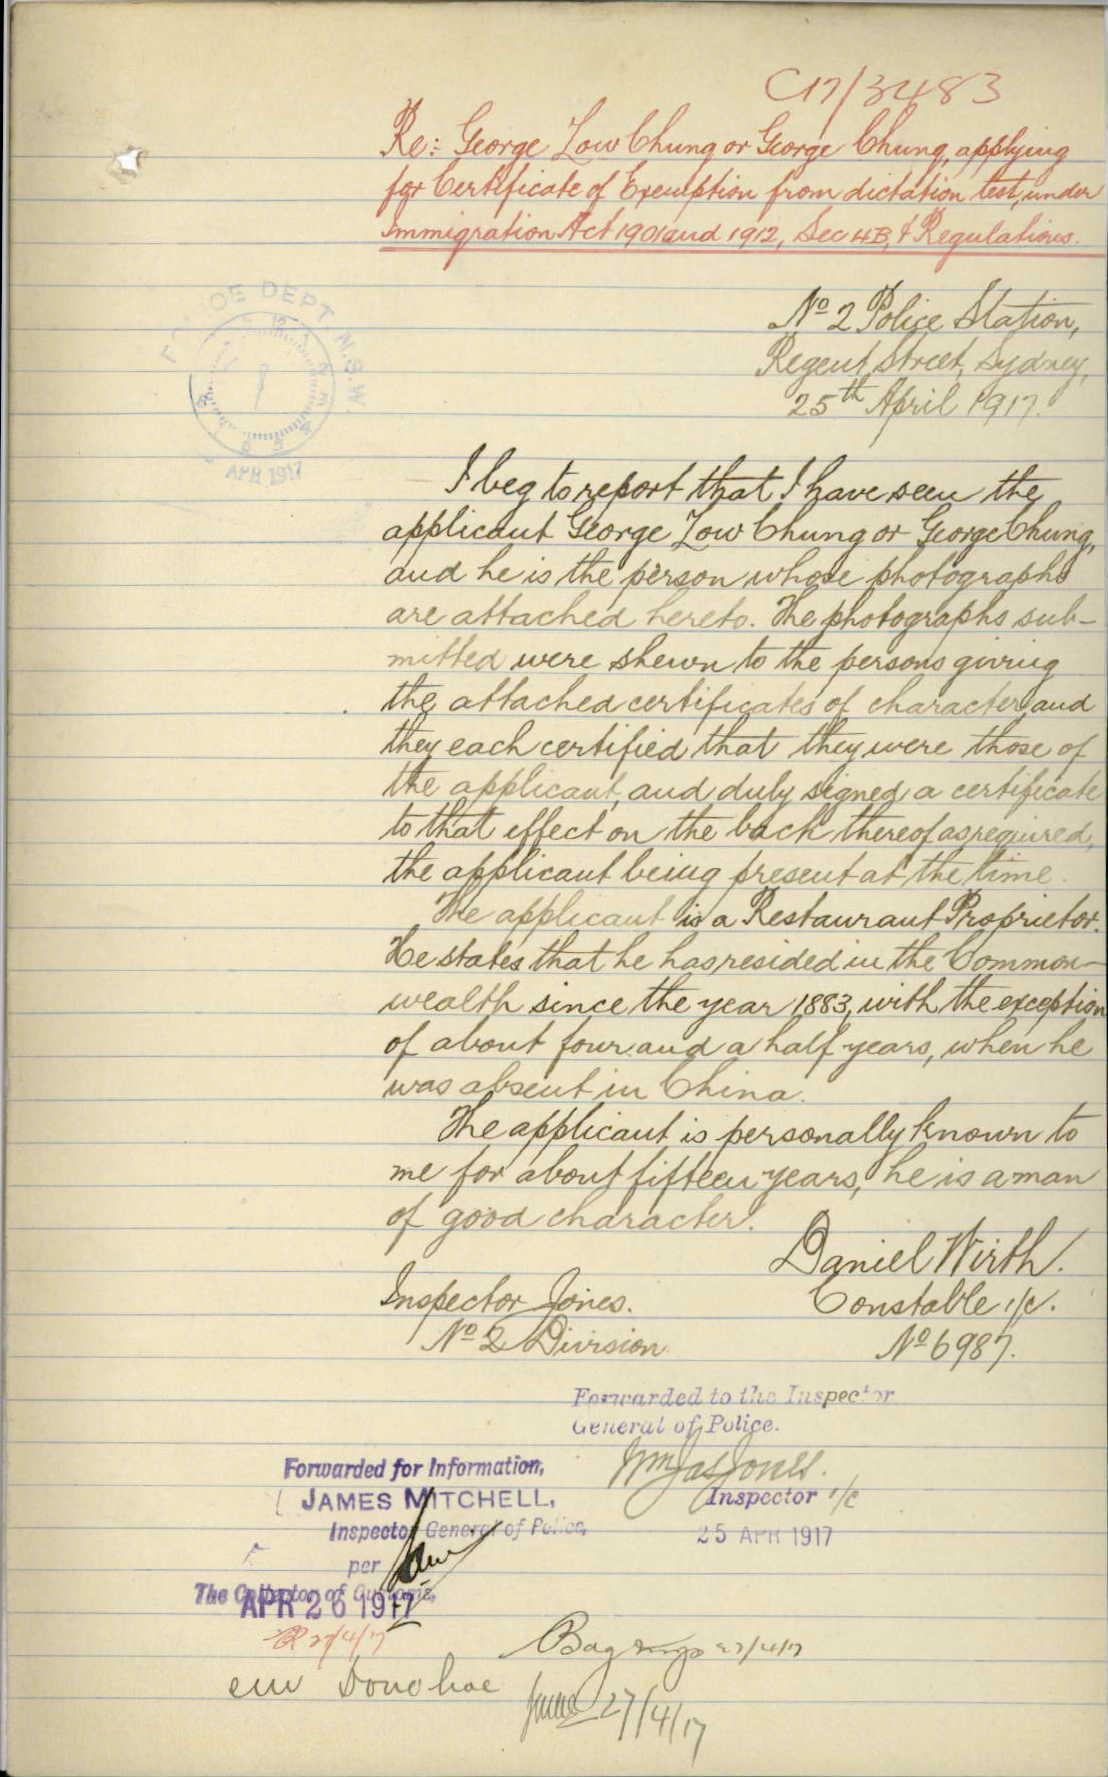 C17/3483
Re:- George Low Chung or George Chung, applying
for Certificate of Exemption from dictation test, under
Immigration Act 1901 and 1912, Sec 4B, & Regulations.
No 2 Police Station,
Regent Street, Sydney,
25th April 1917.
DEPT N.S.W.
APR 1917
I beg to report that I have seen the
applicant George Low Chung or George Chung,
and he is the person whose photographs
are attached hereto. The photographs sub-
mitted were shewn to the persons giving
the attached certificates of character, and
they each certified that they were those of
the applicant, and duly signed a certificate
to that effect on the back thereof as required,
the applicant being present at the time.
The applicant is a Restaurant Proprietor.
He states that he has resided in the Common-
wealth since the year 1883, with the exception
of about four and a half years, when he
was absent in China.
The applicant is personally known to
me for about fifteen years, he is a man
of good character.
Daniel Wirth.
Constable 1/c.
No 6987.
Inspector Jones.
No 2 Division
Forwarded to the Inspector
General of Police.
Wm Jas Jones.
Inspector 1/c
25 APR 1917
Forwarded for Information,
JAMES MITCHELL,
Inspector General of Police,
per
The Collector of Customs,
APR 26 1917
27/4/17
27/4/17
Donohoe
27/4/17